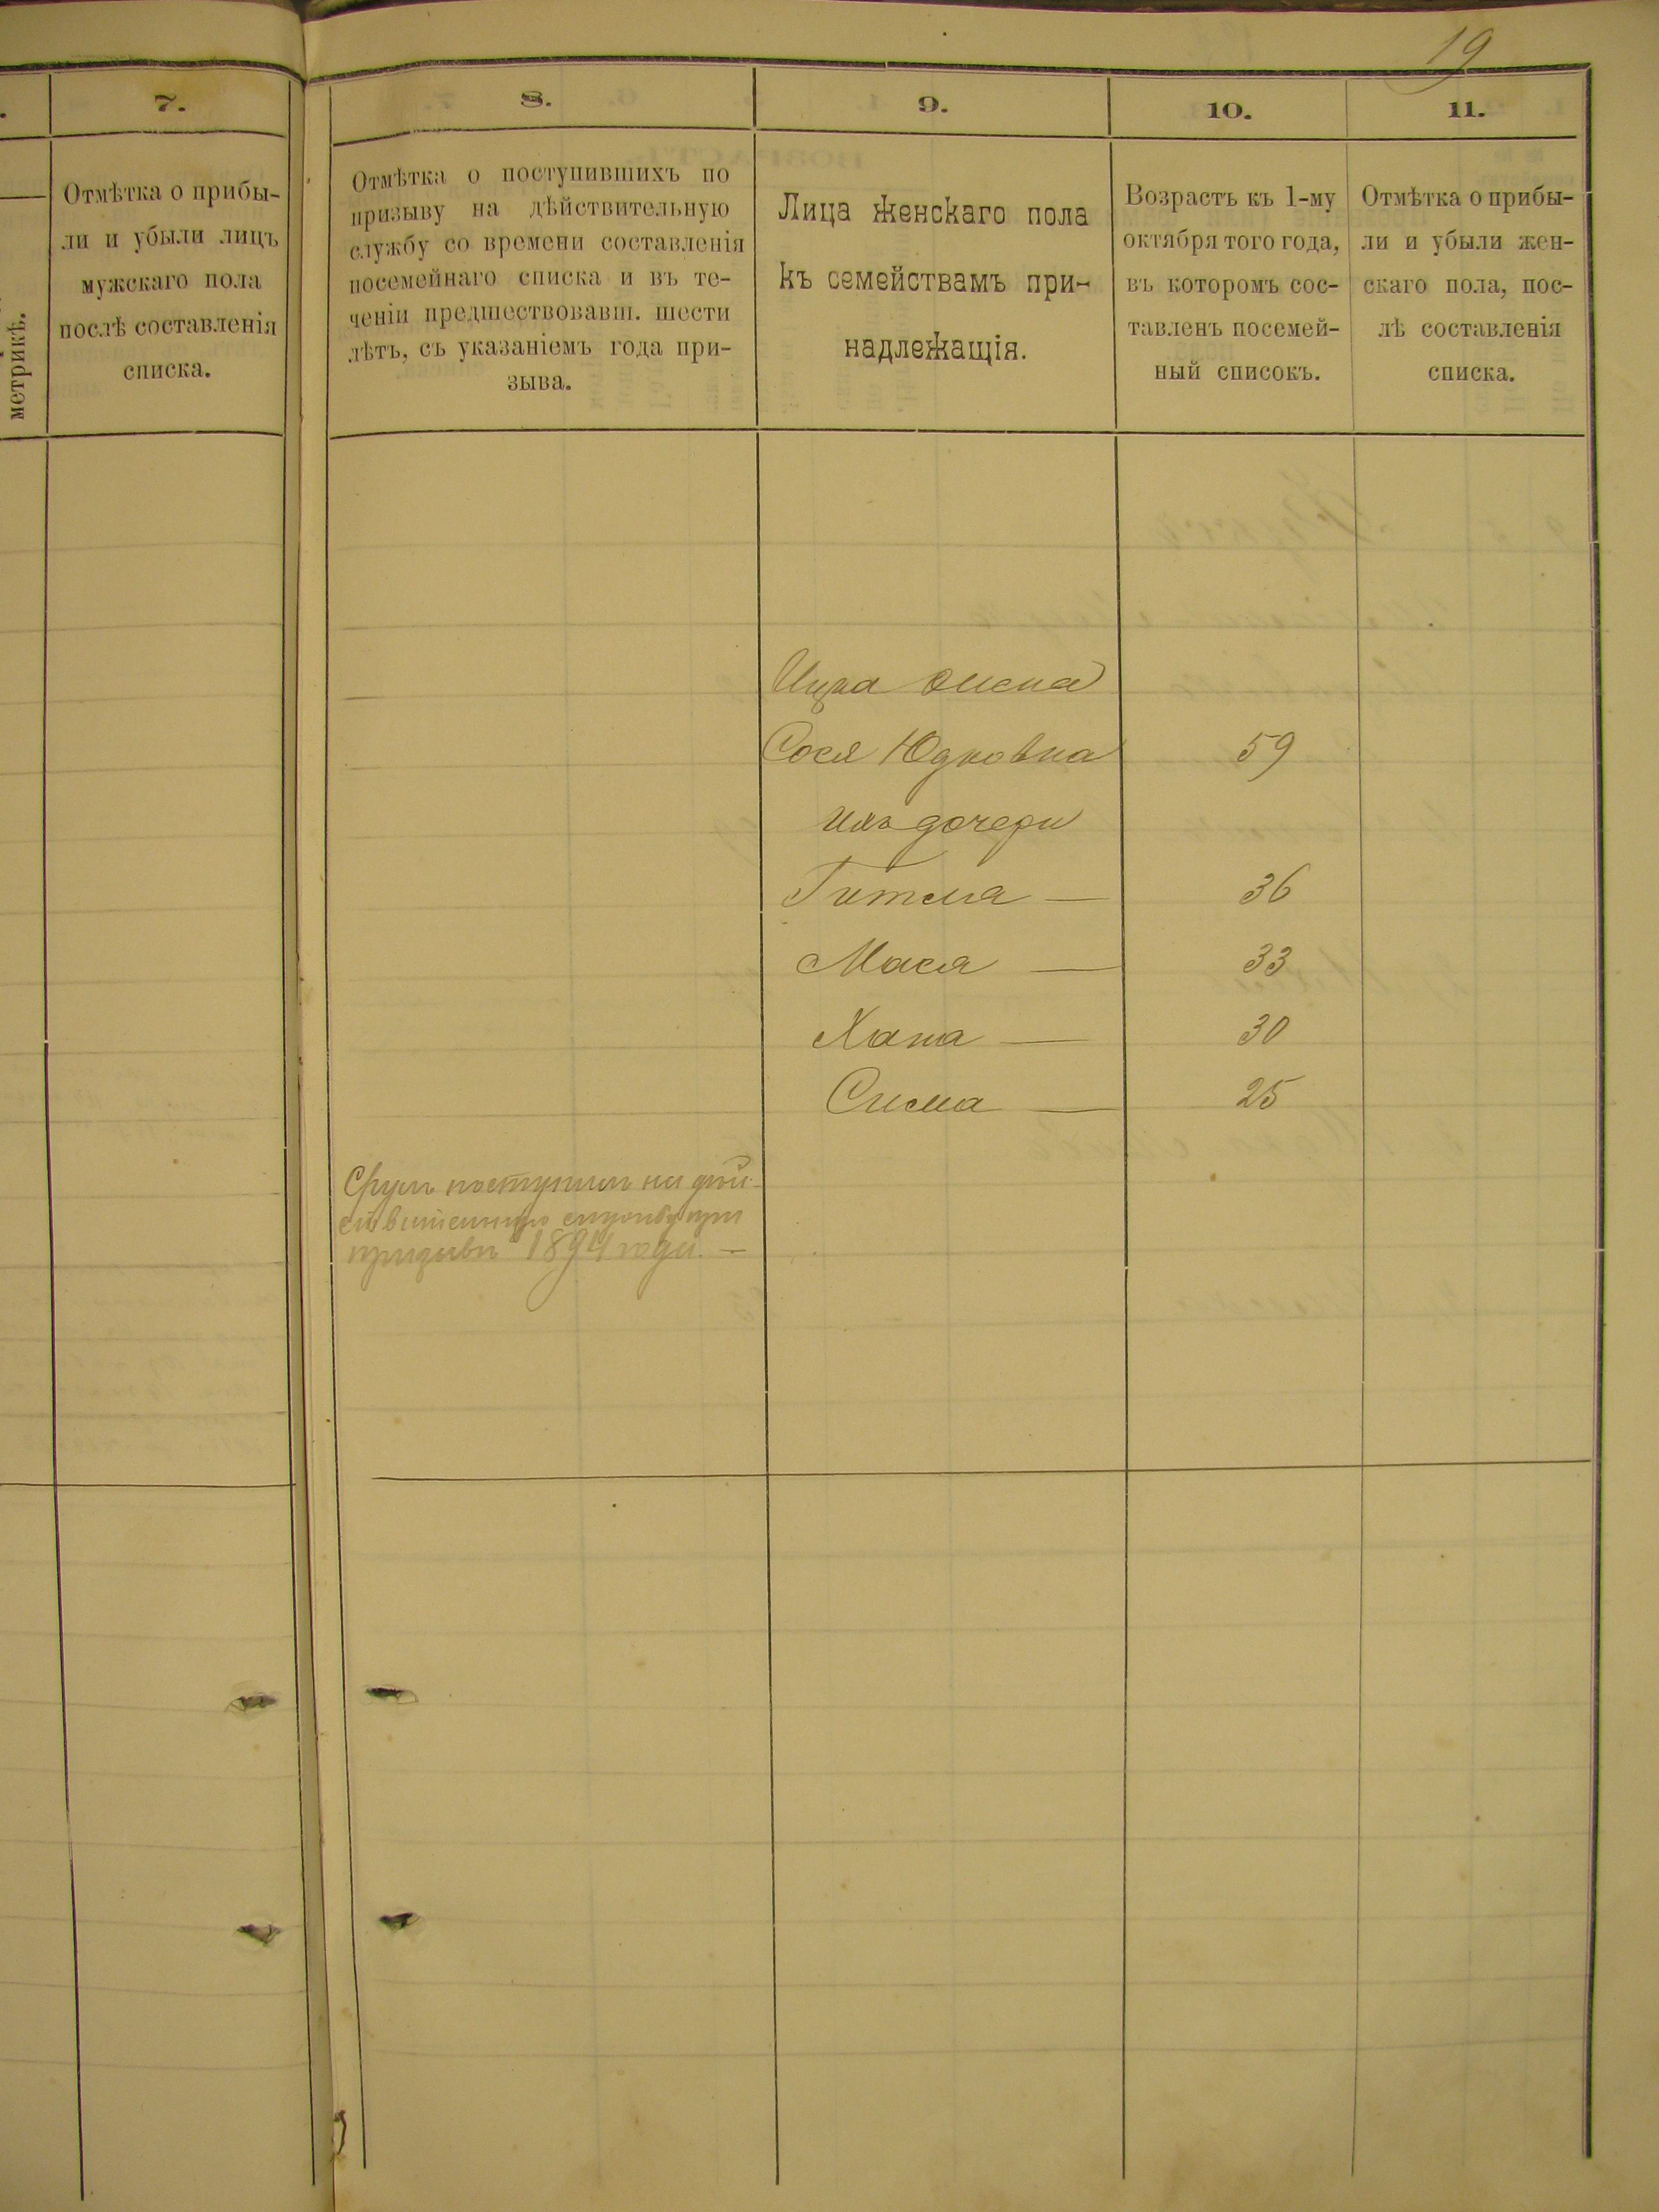 19
7.
8.
9.
10.
11.
метрикѣ.
Отмѣтка о прибы-
ли и убыли лицъ
мужскаго пола
послѣ составленія
списка.
Отмѣтка о поступившихъ по
призыву на дѣйствительную
службу со времени составленія
посемейнаго списка и въ те-
ченіи предшествовавш. шести
лѣтъ, съ указаніемъ года при-
зыва.
Лица женскаго пола
къ семействамъ при-
надлежащія.
Возрастъ къ 1-му
октября того года,
въ которомъ сос-
тавленъ посемей-
ный списокъ.
Отмѣтка о прибы-
ли и убыли жен-
скаго пола, пос-
лѣ составленія
списка.
Ицка жена
Сося Юдковна 59
Ихъ дочери
Гитля — 36
Мася — 33
Хана — 30
Сима — 25
Сруль поступилъ на дѣй-
ствительную службу при
призывѣ 1894 года. —